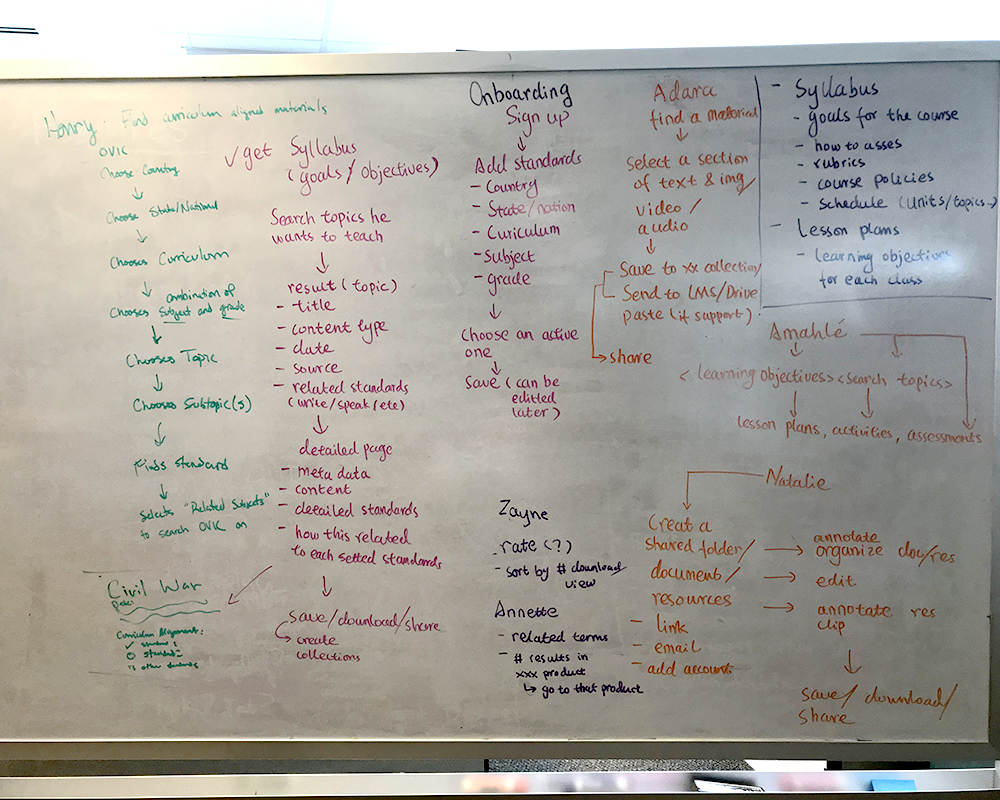 Henry - Find curriculum aligned materials
OVIC
Choose Country
Choose State/National
Chooses Curriculum
combination of
Chooses Subject and grade
Chooses Topic
Chooses Subtopic(s)
Finds Standard
Selects "Related Subsets"
to search OVIC on
Civil War
Curriculum Alignment:
✓ get Syllabus
(goals/objectives)
Search topics he
wants to teach
result (topic)
- title
- content type
- date
- source
- related standards
(write/speak/etc)
detailed page
- meta data
- content
- detailed standards
- how this related
to each setted standards
save/download/share
create
collections
Onboarding
Sign up
Add standards
- Country
- State/nation
- Curiculum
- Subject
- grade
Choose an active
one
Save (can be
editted
later)
Zayne
rate (?)
- sort by # download/
view
Annette
- related terms
- # results in
xxx product
↳ go to that product
Adara
find a material
select a section
of text & img/
video /
audio
Save to xx collection/
Send to LMS/Drive
paste (if support)
share
- Syllabus
- goals for the course
- how to asses
- rubrics
- course policies
- schedule (units/topics..)
- Lesson plans
- learning objectives
for each class
Amahlé
<learning objectives> <search topics>
lesson plans, activities, assessments
Natalie
Creat a
shared folder/
document/
resources
- link
- email
- add account
annotate
organize doc/res
edit
annotate res
clip
save/download/
share